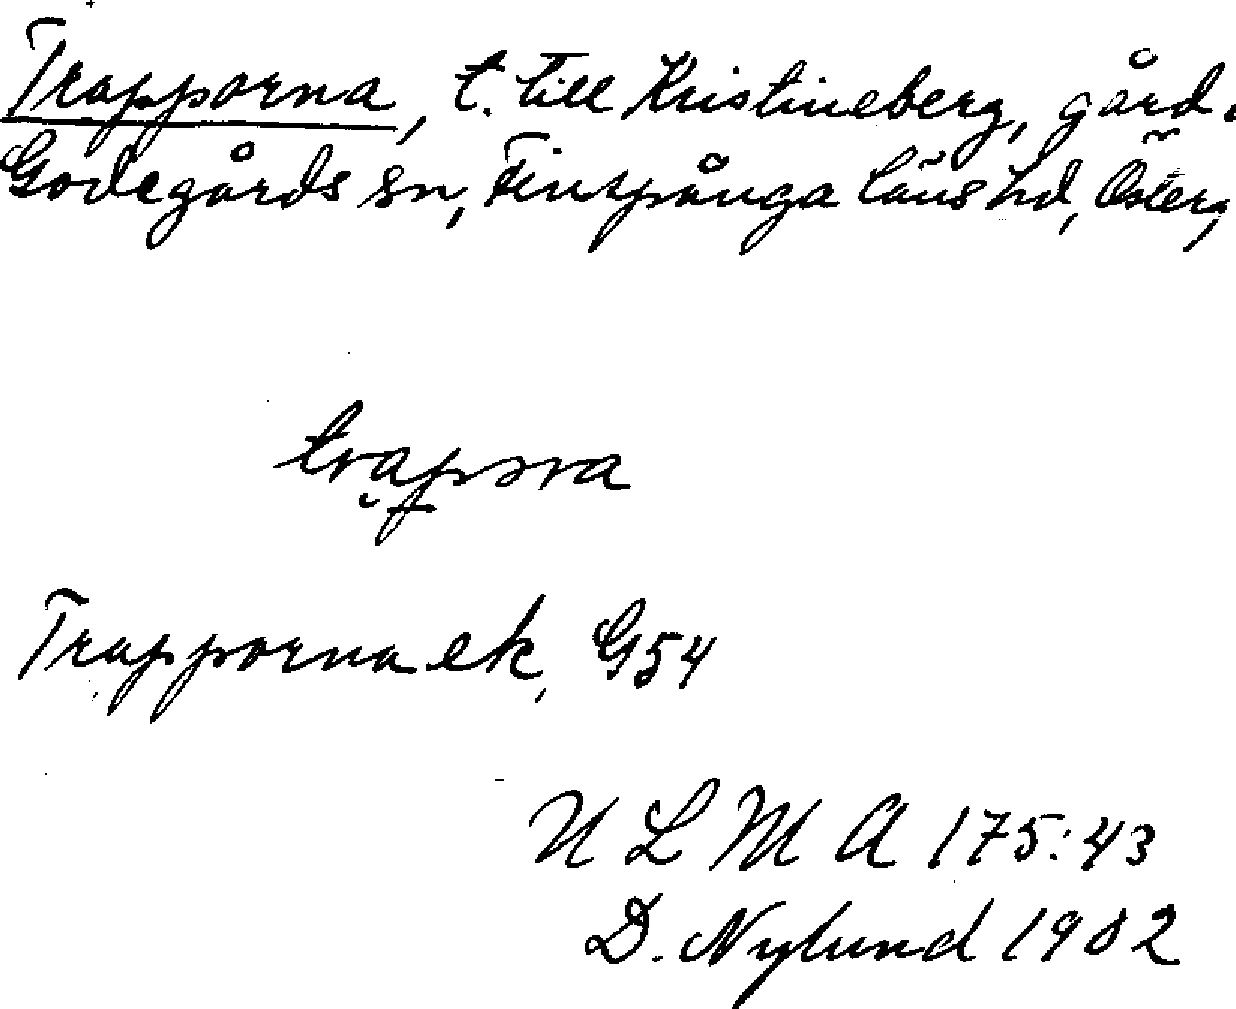 Trapporna, t. till Kristineberg, gård.
Godegårds sn, Finspånga läns hd, Österg
trapora
Trapporna ek, G54
U L M A 175:43
D. Nylund 1902